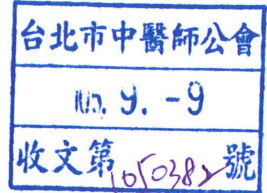 台北市中醫師公會
105. 9. -9
收文第1050382號